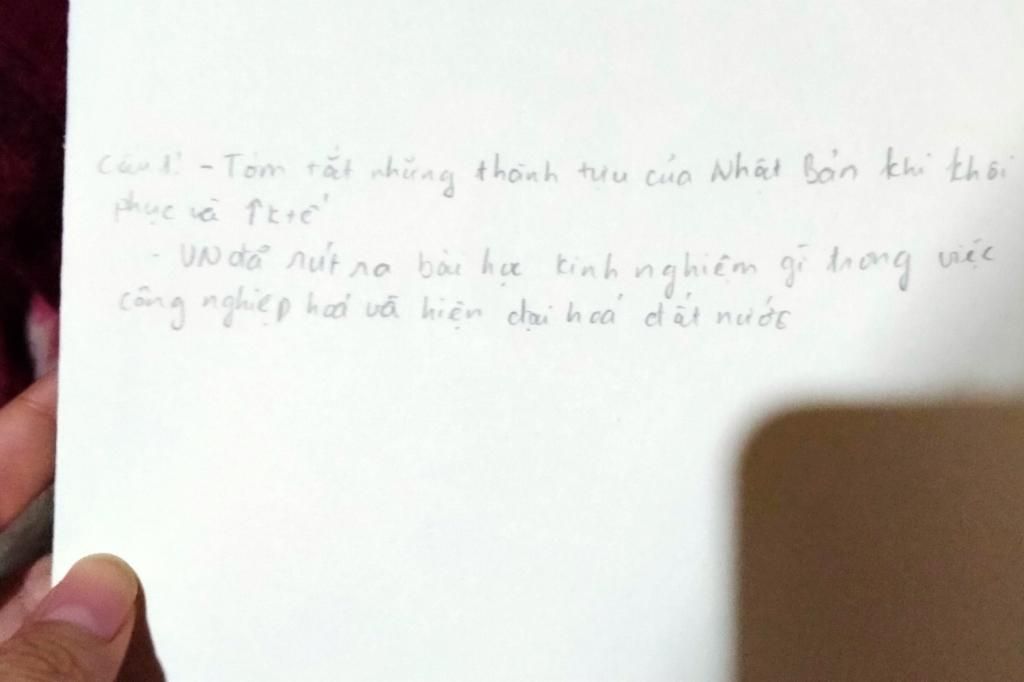 Câu 1: - Tóm tắt những thành tựu của Nhật Bản khi khôi
phục và ↑ktế
- VN đã rút ra bài học kinh nghiệm gì trong việc
công nghiệp hoá và hiện đại hoá đất nước